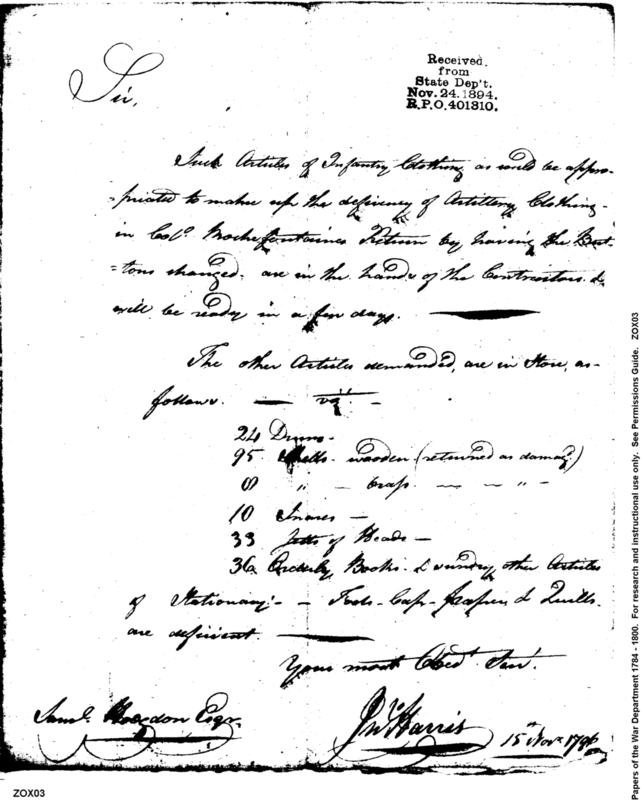 Received.
from
State Dep't.
Nov. 24. 1894.
R.P.O. 401310.
Sir,
Such Articles of Infantry Clothing as will be appro-
-priated to make up the deficiency of Artillery Clothing -
in Colo. Rochefontaines Return by having the But-
-tons changed. are in the hands of the Contractors &
will be ready in a few days.
The other Articles demanded, are in Store, as -
follows. — viz. —
24 Drums -
95 Shells - wooden (returned as damag'd)
8 " — brass — — " -
10 Snares —
33 Setts of Heads —
36 Orderly Books - & sundry other Articles
of Stationary - — Fools - Cap - paper & Quills -
are deficient.
Your most Obedt. Sert.
Saml. Hodgdon Esqr.
Jno. Harris
15th Novr. 1796
Papers of the War Department 1784 - 1800. For research and instructional use only. See Permissions Guide. ZOX03
ZOX03